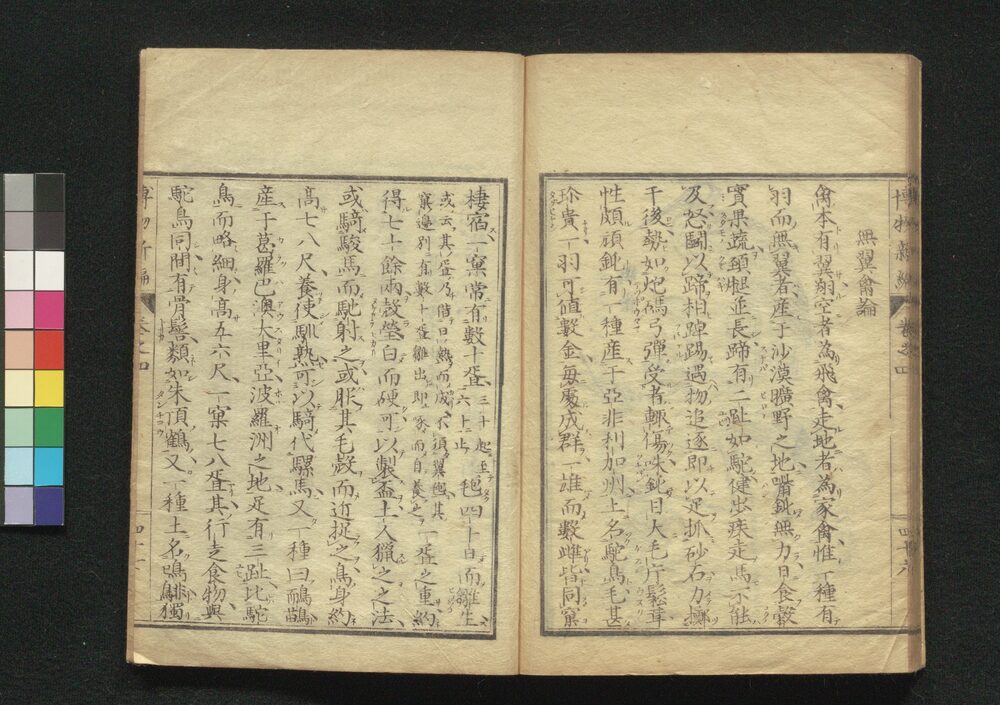 無翼禽論
禽本有翼翔空者為飛禽走地者為家禽惟一種有
羽而無翼者產于沙漠曠野之地嘴鈍無力日食穀
實果疏頸腿並長蹄有二趾如駝健步疾走馬不能
及怒鬪以蹄相踶踢遇物追逐即以足抓砂石力擲
于後勢如炮碼弓彈受者輒傷味鈍目大毛片鬆茸
性頗頑鈍有一種產于亞非利加州土名駝鳥毛甚
珍貴一羽可值數金每處成群一雄而數雌皆同窠
棲宿一窠常有數十蛋三十起至六十止毎四十日而雛生
或云其蛋乃借日熱而成不須翼匏其
窠邊別有數十蛋雛出即啄而自養之一蛋之重約
得七十餘兩殼瑩白而硬可以製盃土人獵之之法
或騎駿馬而馳射之或服其毛殼而近捉之鳥身約
高七八尺養使馴熟可以騎代騾馬又一種曰鴯鶓
產于葛羅巴澳大里亞波羅洲之地足有三趾比駝
鳥而略細身高五六尺一窠七八蛋其行走食物與
駝鳥同間有骨髻類如朱頂鶴又一種土名鳴騑獨
博物新編
卷之四